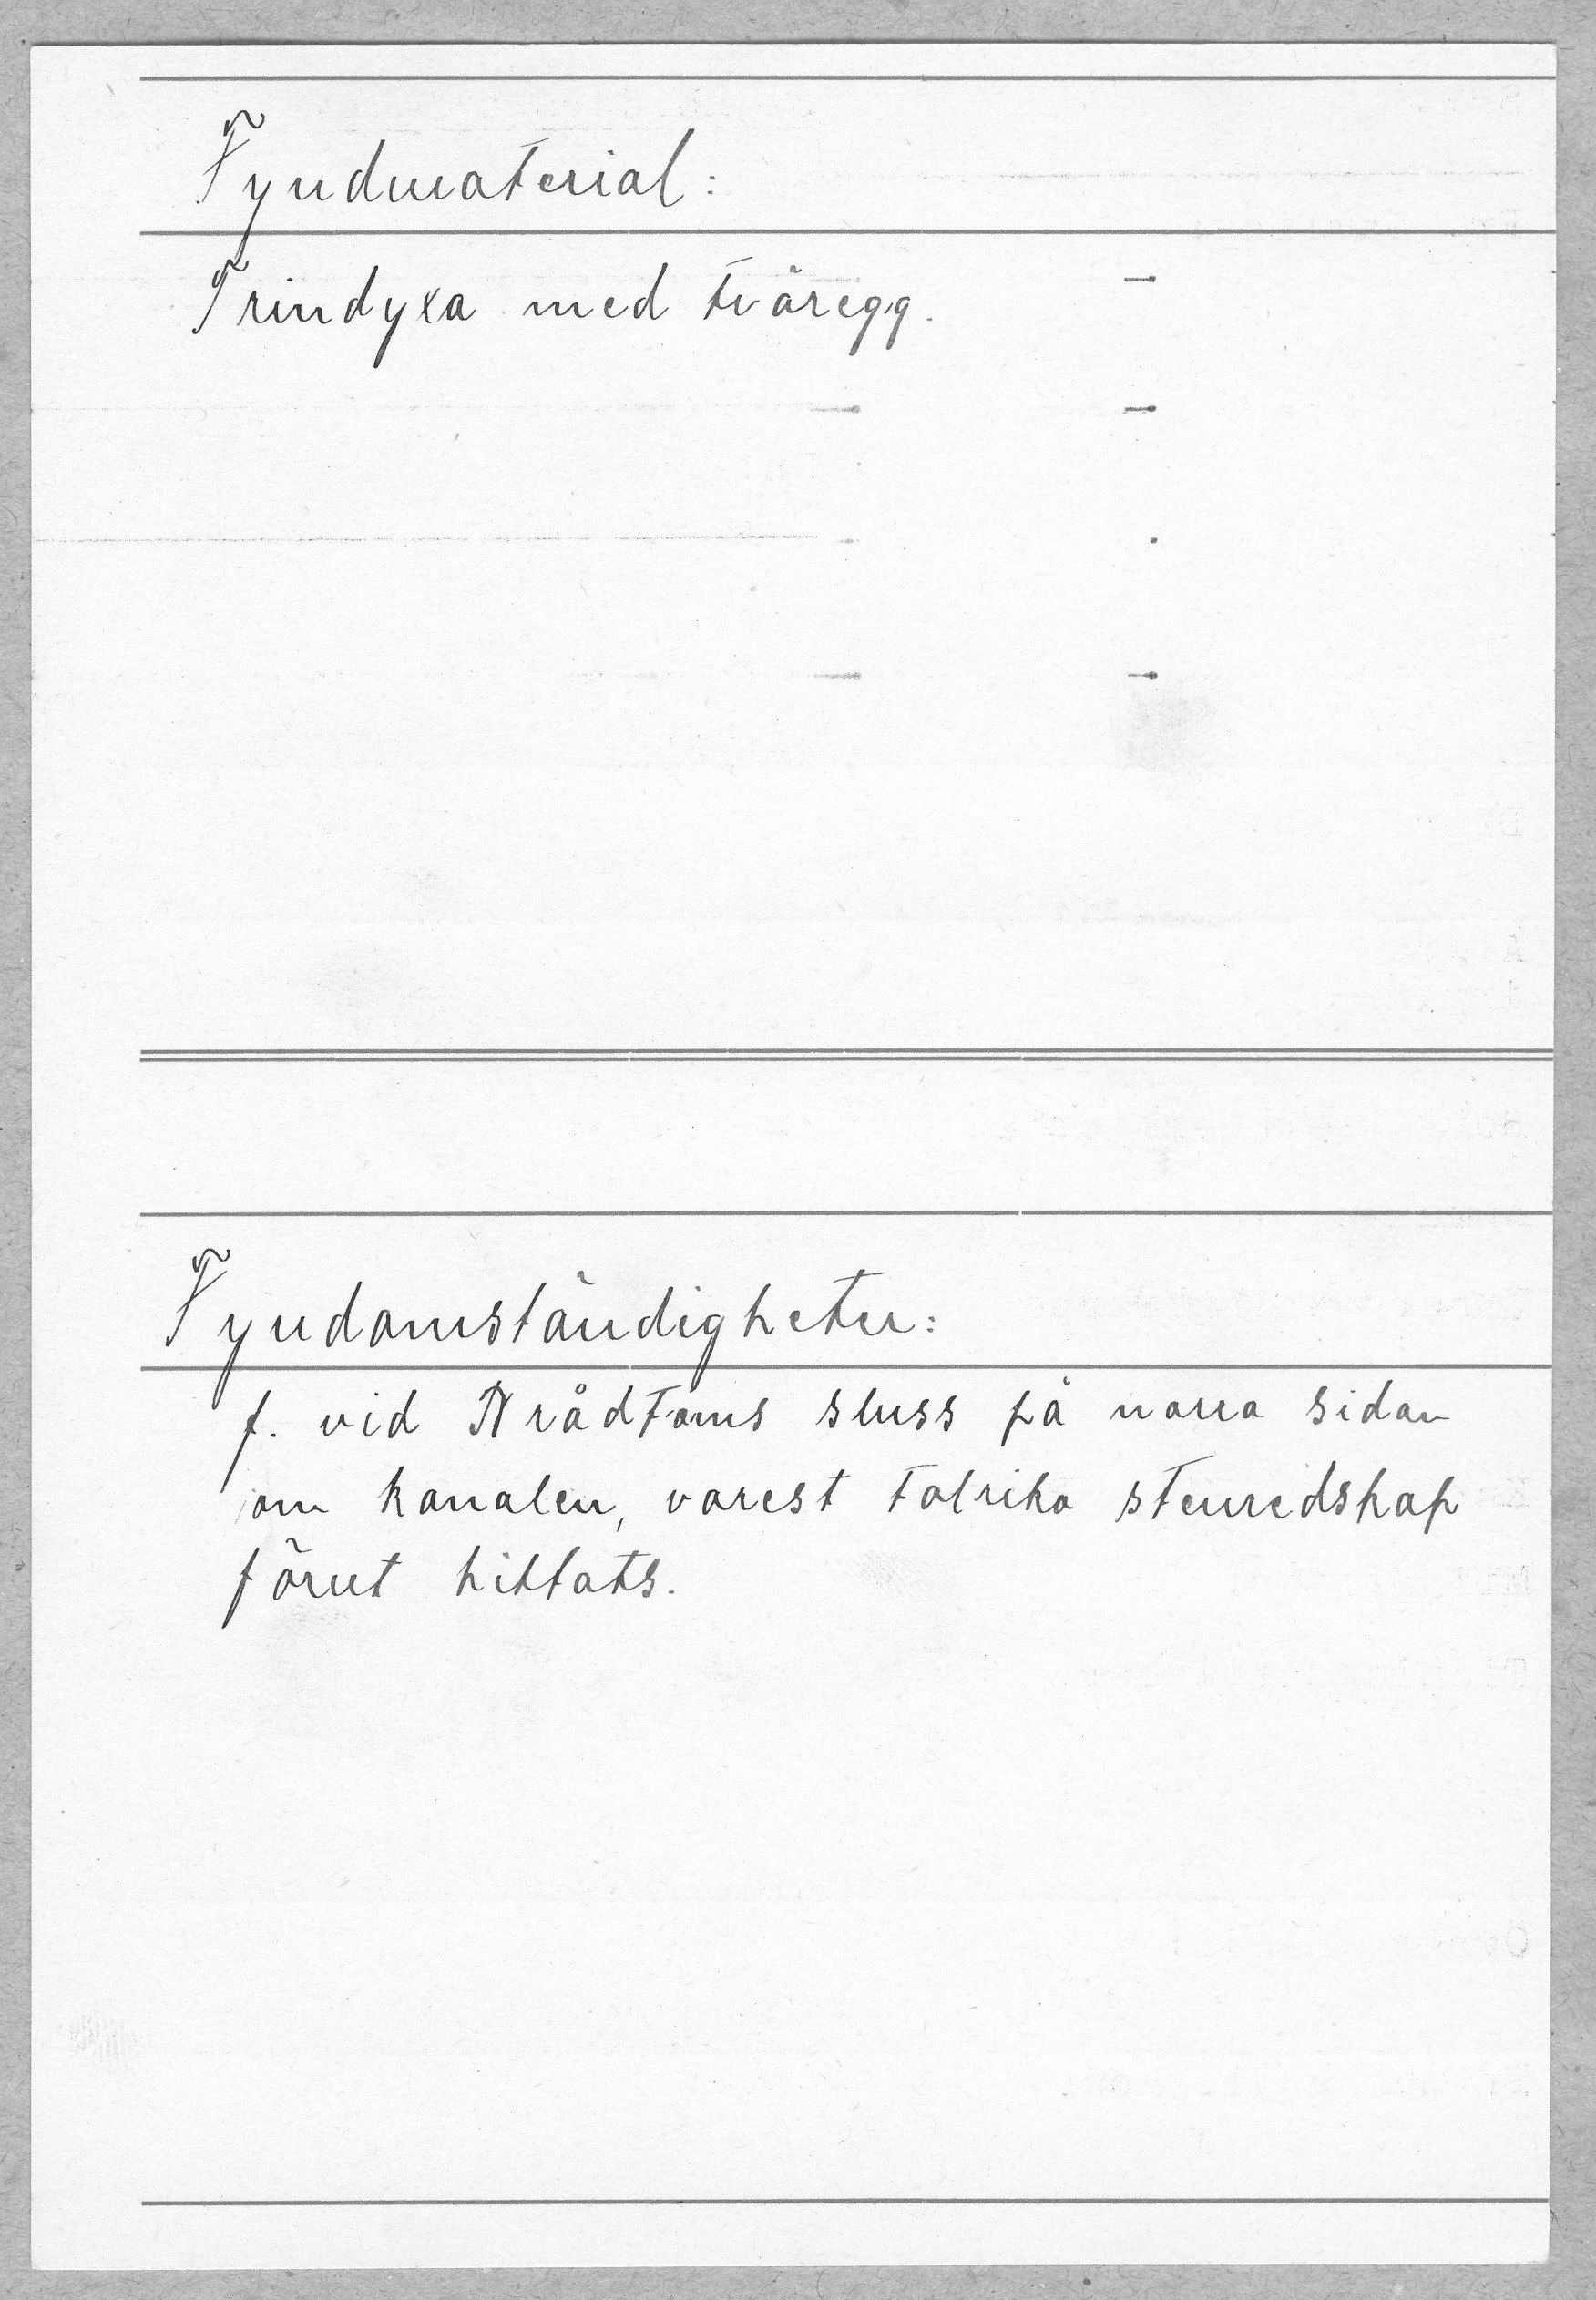 Fyndmaterial:
Trindyxa med tväregg.
Fyndomständigheter:
f. vid Brådtoms sluss på norra sidan
om kanalen, varest talrika stenredskap
förut hittats.